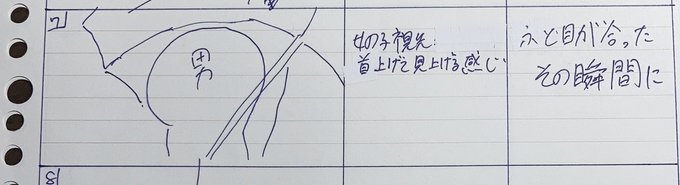 7
男
女の子視先
首上げて見上げる感じ
ふと目が合った
その瞬間に
8